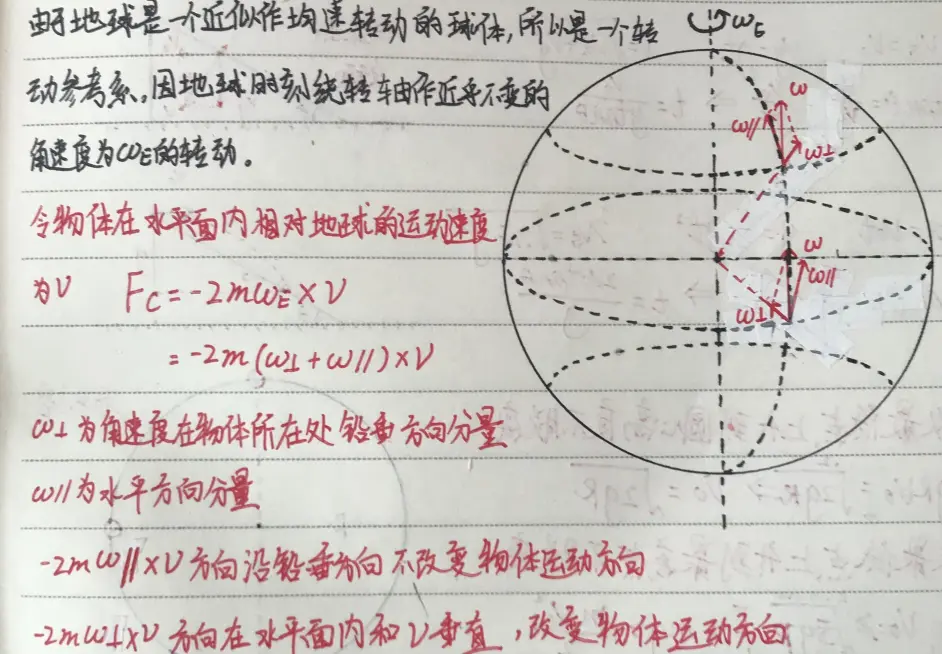 由于地球是一个近似作均速转动的球体,所以是一个转
动参考系,因地球时刻绕转轴作近乎不变的
角速度为ωE的转动。
令物体在水平面内相对地球的运动速度
为V Fc=-2mωE×V
=-2m(ω⊥+ω//)×V
ω⊥为角速度在物体所在处铅垂方向分量
ω//为水平方向分量
-2mω//×V方向沿铅垂方向不改变物体运动方向
-2mω⊥×V方向在水平面内和V垂直,改变物体运动方向
ωE
ω
ω//
ω⊥
ω
ω//
ω⊥